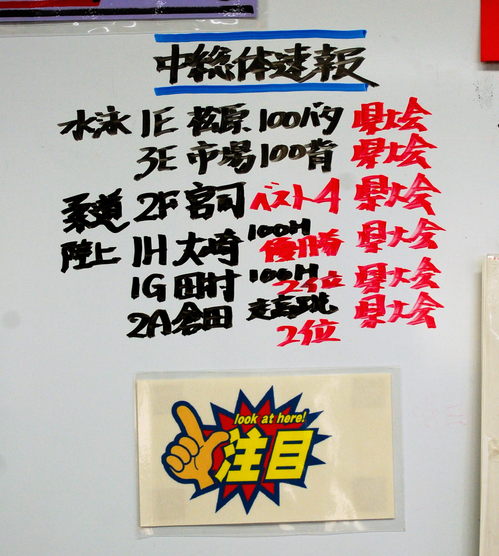 中総体速報
水泳 1E 松原 100バタ 県大会
3E 市場 100背 県大会
柔道 2F 宮司 ベスト4 県大会
陸上 1H 大崎 100H 優勝 県大会
1G 田村 100H 2位 県大会
2A 倉田 走高跳 2位 県大会
look at here!
注目